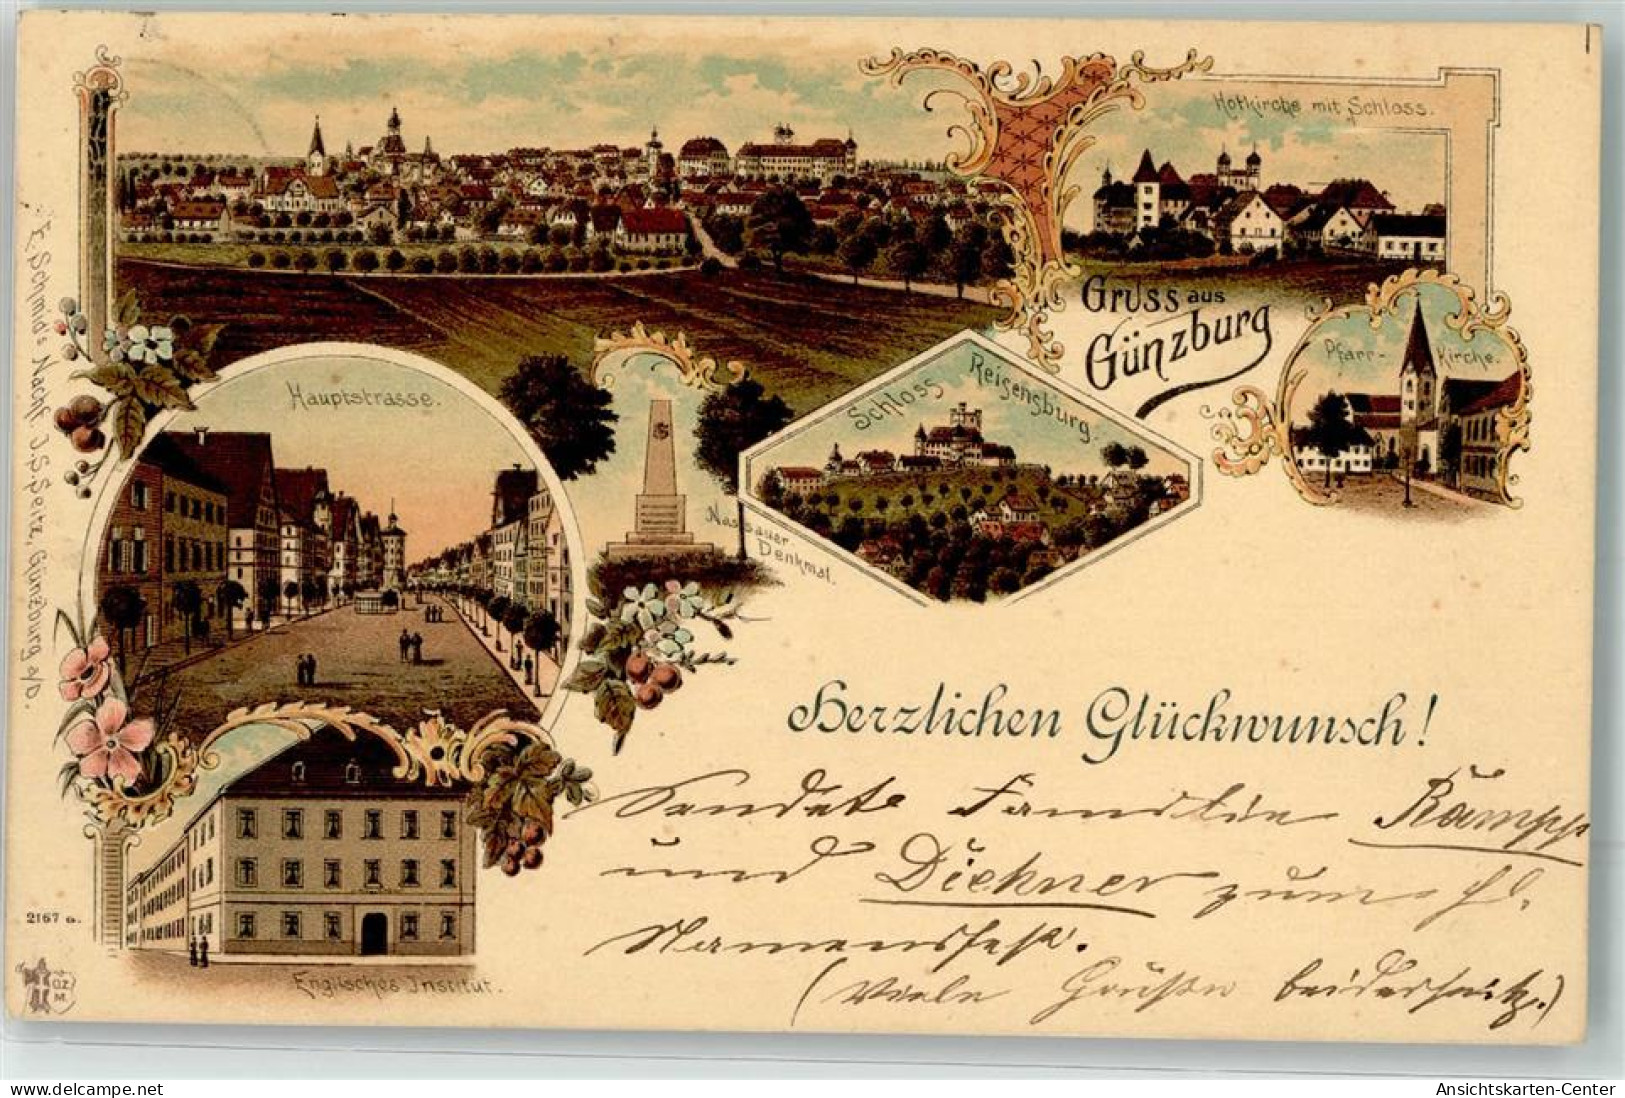 Hofkirche mit Schloss.
Gruss aus
Günzburg
Pfarr- Kirche.
Hauptstrasse.
Schloss Reisensburg.
Nassauer-
Denkmal.
F. Schmid's Nachf. J. S. Seitz, Günzburg a/D.
Herzlichen Glückwunsch!
Sendet Familie Kämpp
und Diehner zum hl.
Namensfest.
(Viele Grüße beiderseits.)
2167 G.
O.Z.
M.
Englisches Institut.
oldthing.com
Ansichtskarten-Center